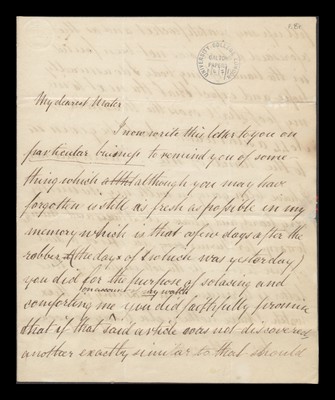 UNIVERSITY COLLEGE
GALTON
PAPERS
My dearest Mater
I now write this letter to you on
particular buisness to remind you of some
thing which altho although you may have
forgotten is still as fresh as possible in my
memory which is that a few days after the
robber (the day of which was yesterday)
you did for the purpose of solacing and
on account
comforting me you did faithfully promise
that if that said article was not discovered
another exactly similar to that should